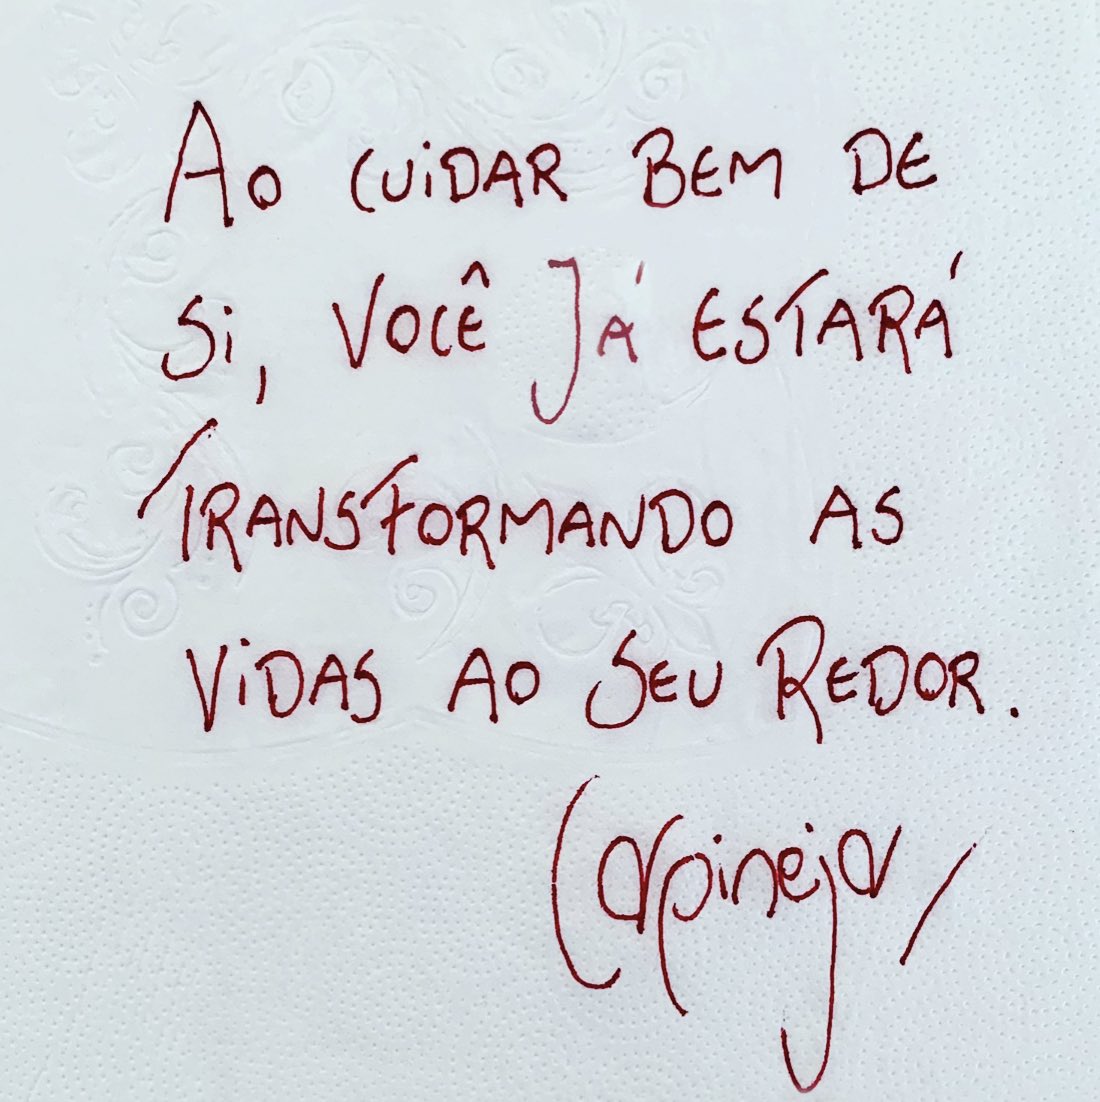 Ao CUiDAR BEM DE
Si, VOCÊ JÁ ESTARÁ
TRANSFORMANDO AS
ViDAS AO SEU REDOR.
Carpinejar